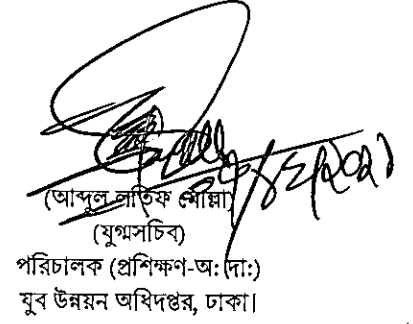 (আব্দুল লতিফ মোল্লা)
(যুগ্মসচিব)
পরিচালক (প্রশিক্ষণ-অ: দা:)
যুব উন্নয়ন অধিদপ্তর, ঢাকা।